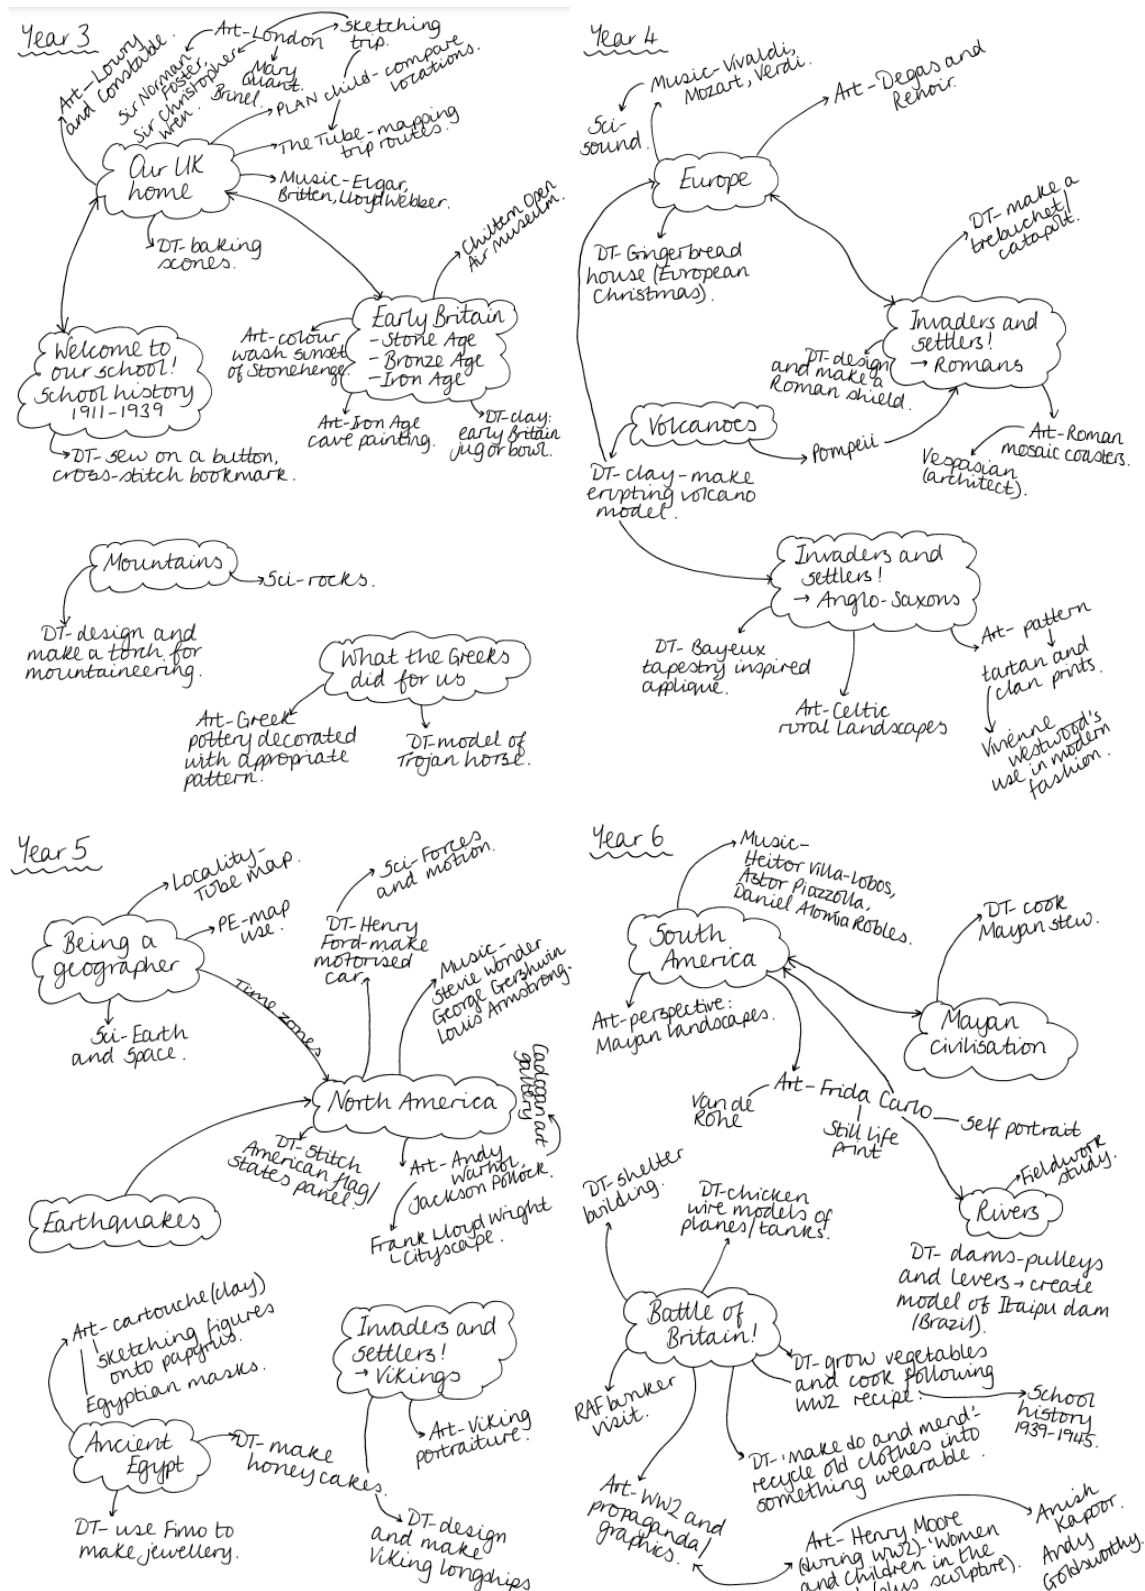 Year 3
Art-Lowry
and Constable.
Art-London
Sir Norman
Foster,
Sir Christopher
Wren.
Mary
Quant.
Brinel.
Sketching
trip.
PLAN child-compare
locations.
The Tube-mapping
trip routes.
Our UK
home
Music-Elgar,
Britten, Lloyd Webber.
DT-baking
scones.
Chiltern Open
Air Museum.
Early Britain
-Stone Age
-Bronze Age
-Iron Age
Art-colour
wash sunset
of Stonehenge.
Art-Iron Age
cave painting.
DT-clay:
early Britain
jug or bowl.
Welcome to
our school!
School history
1911-1939
DT-sew on a button,
cross-stitch bookmark.
Mountains
Sci-rocks.
DT-design and
make a torch for
mountaineering.
What the Greeks
did for us
Art-Greek
pottery decorated
with appropriate
pattern.
DT-model of
Trojan horse.
Year 4
Music-Vivaldi,
Mozart, Verdi.
Sci-
sound.
Art-Degas and
Renoir.
Europe
DT-Gingerbread
house (European
Christmas).
DT-make a
trebuchet/
catapult.
Invaders and
settlers!
→ Romans
DT-design
and make a
Roman shield.
Volcanoes
Pompeii
Art-Roman
mosaic coasters.
Vespasian
(architect).
DT-clay-make
erupting volcano
model.
Invaders and
settlers!
→ Anglo-Saxons
DT-Bayeux
tapestry inspired
applique.
Art-Celtic
rural landscapes
Art-pattern
tartan and
clan prints.
Vivienne
Westwood's
use in modern
fashion.
Year 5
Locality-
Tube map.
PE-map
use.
Being a
geographer
Sci-Earth
and Space.
Time zones
Sci-Forces
and motion.
DT-Henry
Ford-make
motorised
car.
Music-
Stevie Wonder
George Gershwin
Louis Armstrong.
North America
Cadogan art
gallery
DT-stitch
American flag/
states panel.
Art-Andy
Warhol,
Jackson Pollock.
Frank Lloyd Wright
Cityscape.
Earthquakes
Art-cartouche (clay)
sketching figures
onto papyrus.
Egyptian masks.
Ancient
Egypt
DT-make
honey cakes.
DT-use Fimo to
make jewellery.
Invaders and
settlers!
→ Vikings
Art-Viking
portraiture.
DT-design
and make
Viking longships
Year 6
Music-
Heitor Villa-Lobos,
Astor Piazzolla,
Daniel Alomia Robles.
South
America
DT-cook
Mayan stew.
Art-perspective:
Mayan landscapes.
Mayan
civilisation
Art-Frida Carlo
Van de
Rohe
Still life
print
Self portrait
Fieldwork
study.
Rivers
DT-dams-pulleys
and levers → create
model of Itaipu dam
(Brazil).
DT-shelter
building.
DT-chicken
wire models of
planes/tanks.
Battle of
Britain!
RAF bunker
visit.
DT-grow vegetables
and cook following
WW2 recipe.
School
history
1939-1945.
DT-'make do and mend'-
recycle old clothes into
something wearable.
Art-WW2 and
propaganda/
graphics.
Art-Henry Moore
(during WW2)-'Women
and children in the
(plus sculpture).
Anish
Kapoor.
Andy
Goldsworthy.